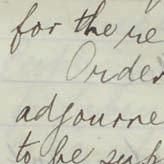 for the re
Order
adjourne
to be sub